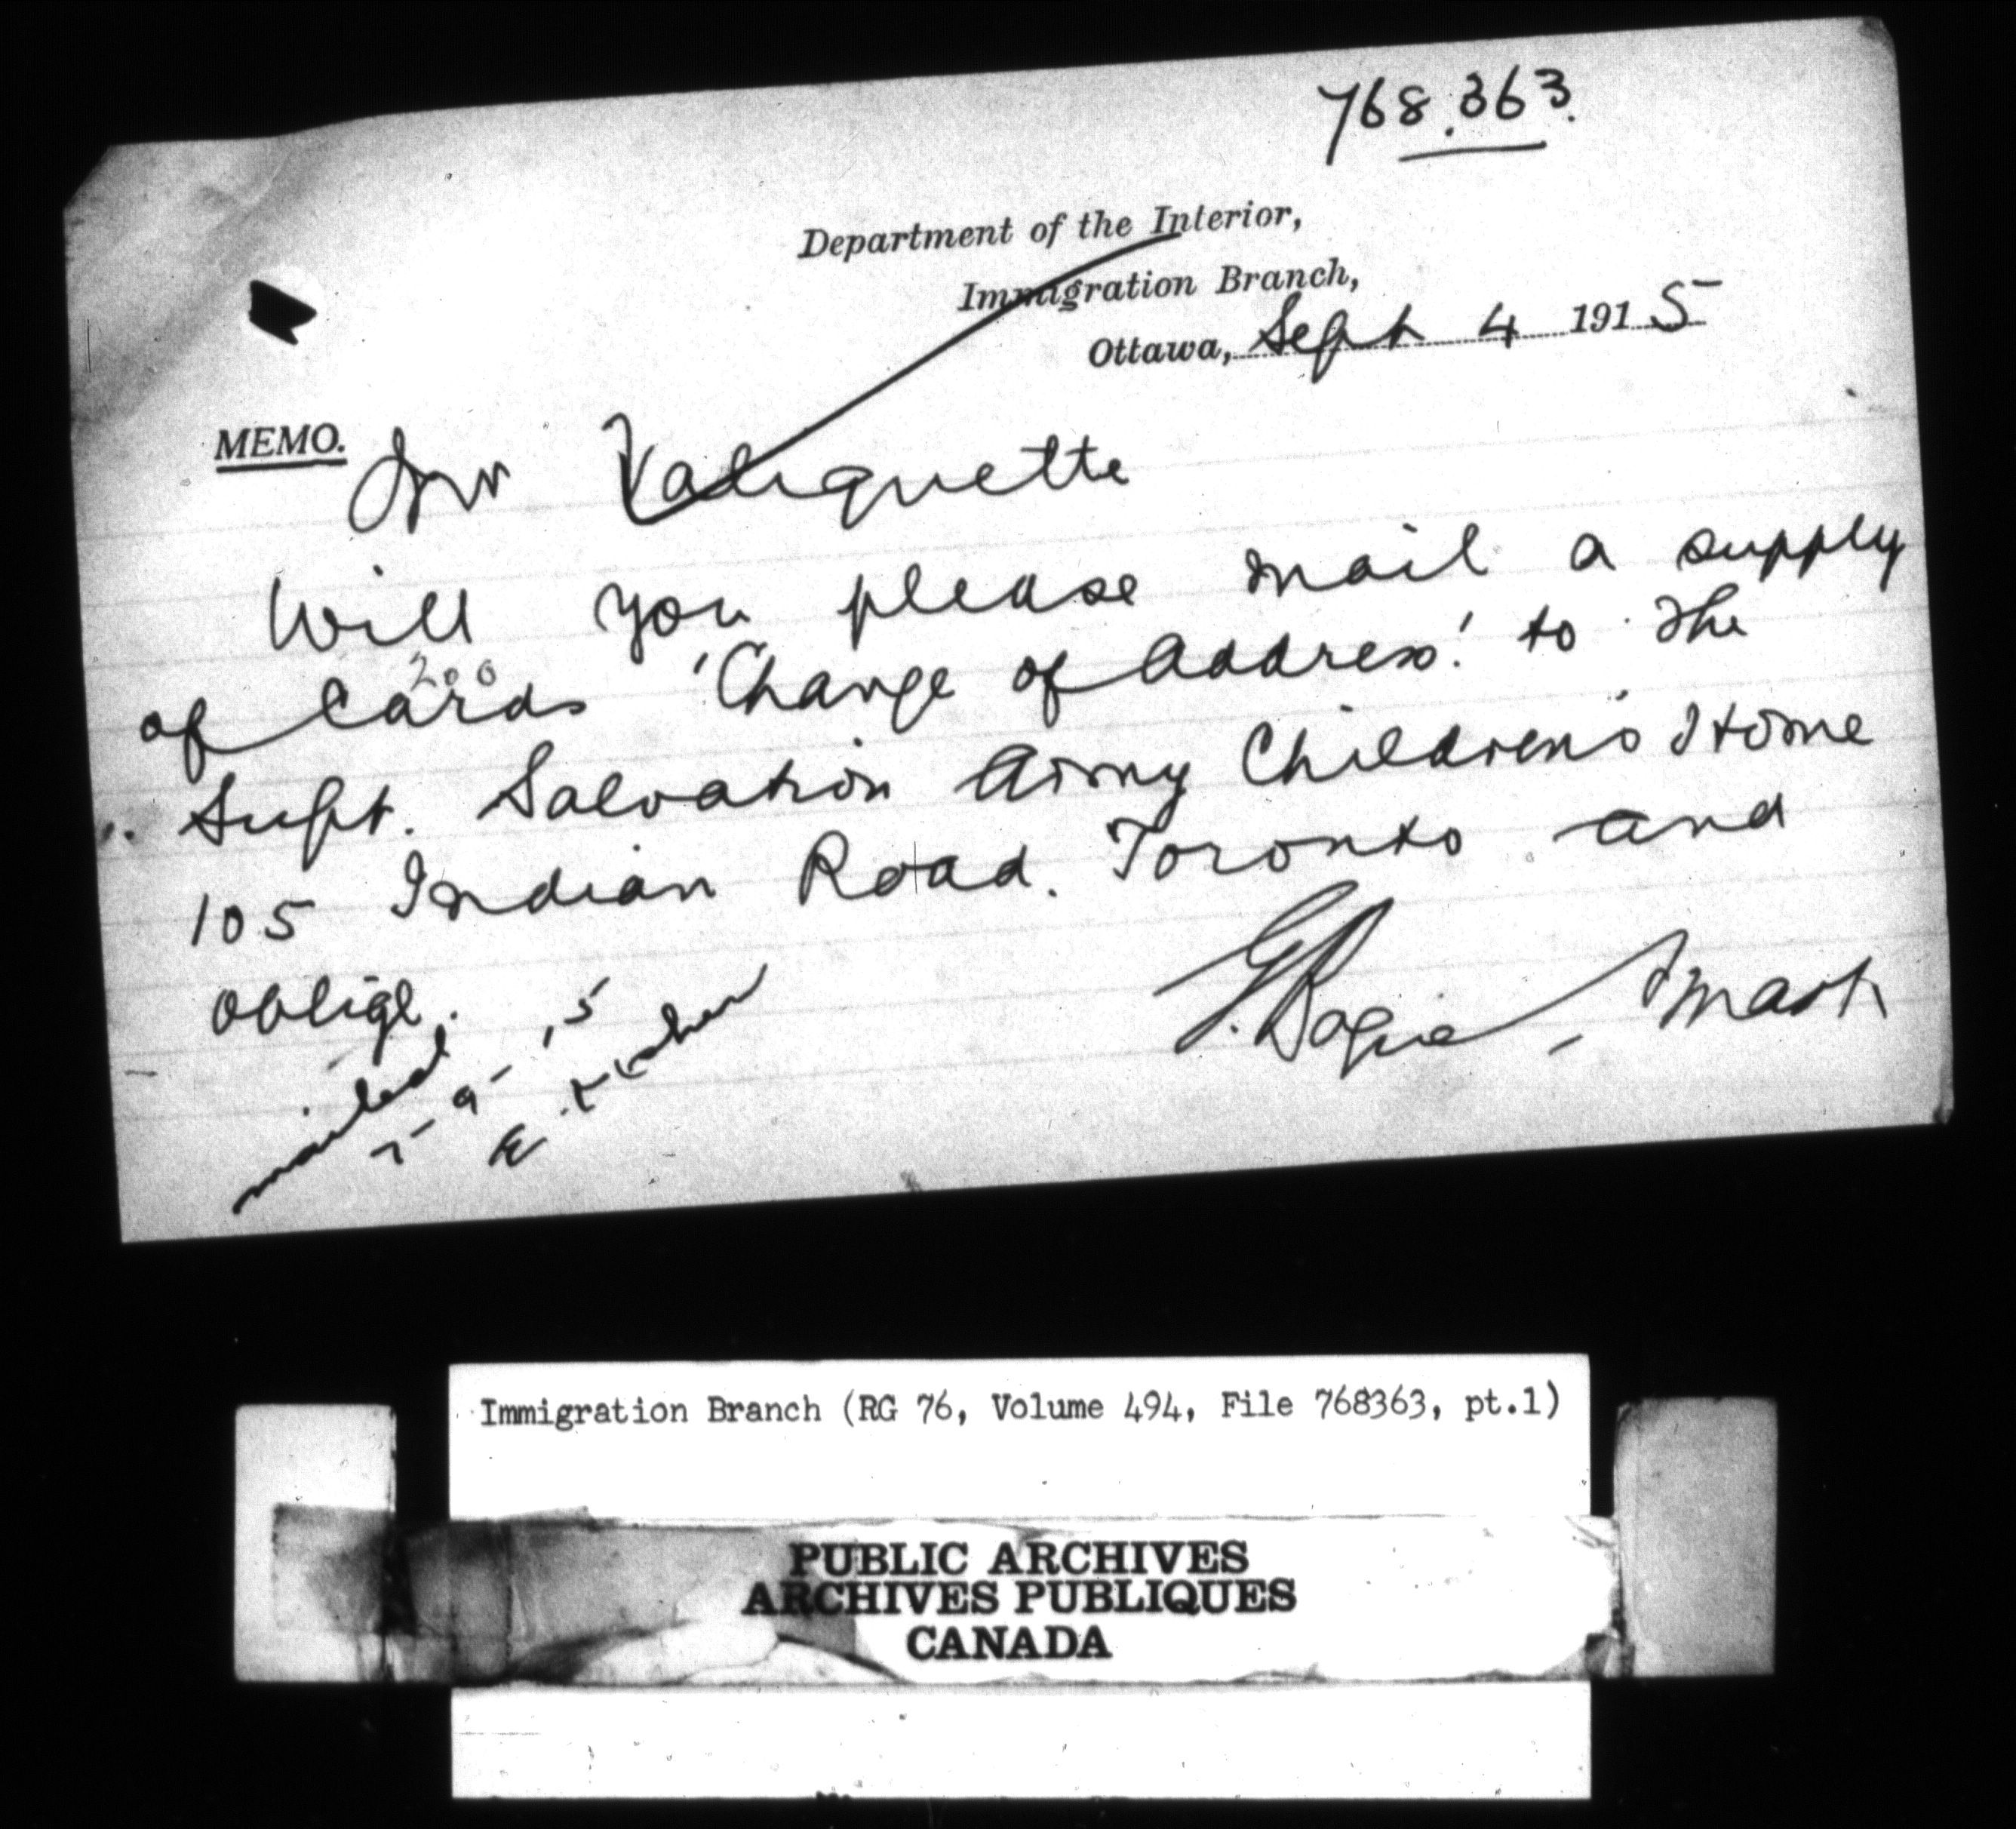 768.363.
Department of the Interior,
Immigration Branch,
Ottawa, Sept 4 1915
MEMO.
Mr Valiquette
Will you please mail a supply
200
of Cards 'Change of Address' to the
Supt. Salvation Army Children's Home
105 Indian Road. Toronto and
oblige.
G. Bogue Smart
mailed
7-9-15
Immigration Branch (RG 76, Volume 494, File 768363, pt.1)
PUBLIC ARCHIVES
ARCHIVES PUBLIQUES
CANADA